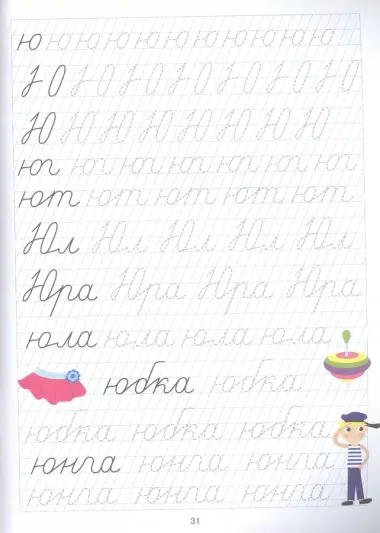 ю ю ю ю ю ю ю ю ю ю ю
Ю Ю Ю Ю Ю Ю Ю Ю
Ю Ю Ю Ю Ю Ю Ю Ю
юг юг юг юг юг юг юг
ют ют ют ют ют ют
Юл Юл Юл Юл Юл
Юра Юра Юра Юра
юла юла юла юла
юбка юбка
юбка юбка юбка
юнга юнга юнга
юнга юнга юнга
31